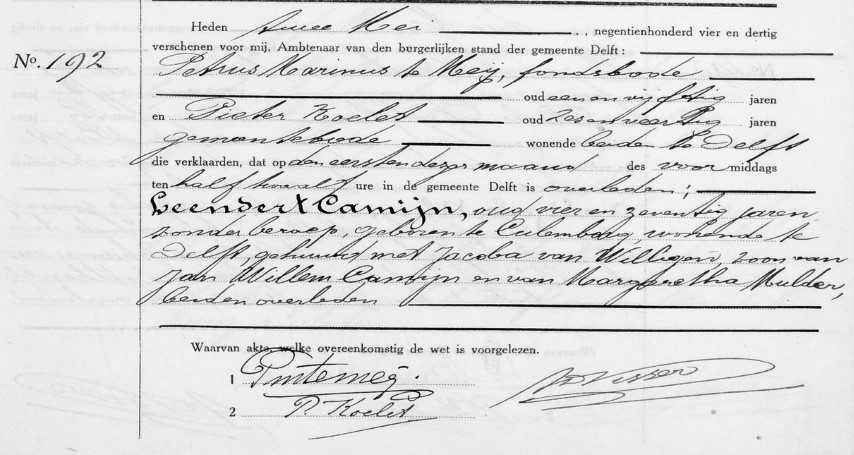 Heden twee Mei, negentienhonderd vier en dertig
verschenen voor mij, Ambtenaar van den burgerlijken stand der gemeente Delft:
No. 192
Petrus Marinus te Meij, fondsbode
oud een en vijftig jaren
en Pieter Koelet oud zes en veertig jaren
gemeentebode wonende beiden te Delft
die verklaarden, dat op den eersten dezer maand des voormiddags
ten half twaalf ure in de gemeente Delft is overleden;
Leendert Camijn, oud vier en zeventig jaren,
zonder beroep, geboren te Culemborg, wonende te
Delft, gehuwd met Jacoba van Willigen, zoon van
Jan Willem Camijn en van Margaretha Mulder,
beiden overleden
Waarvan akte, welke overeenkomstig de wet is voorgelezen.
1 Pmtemeij.
2 P. Koelet